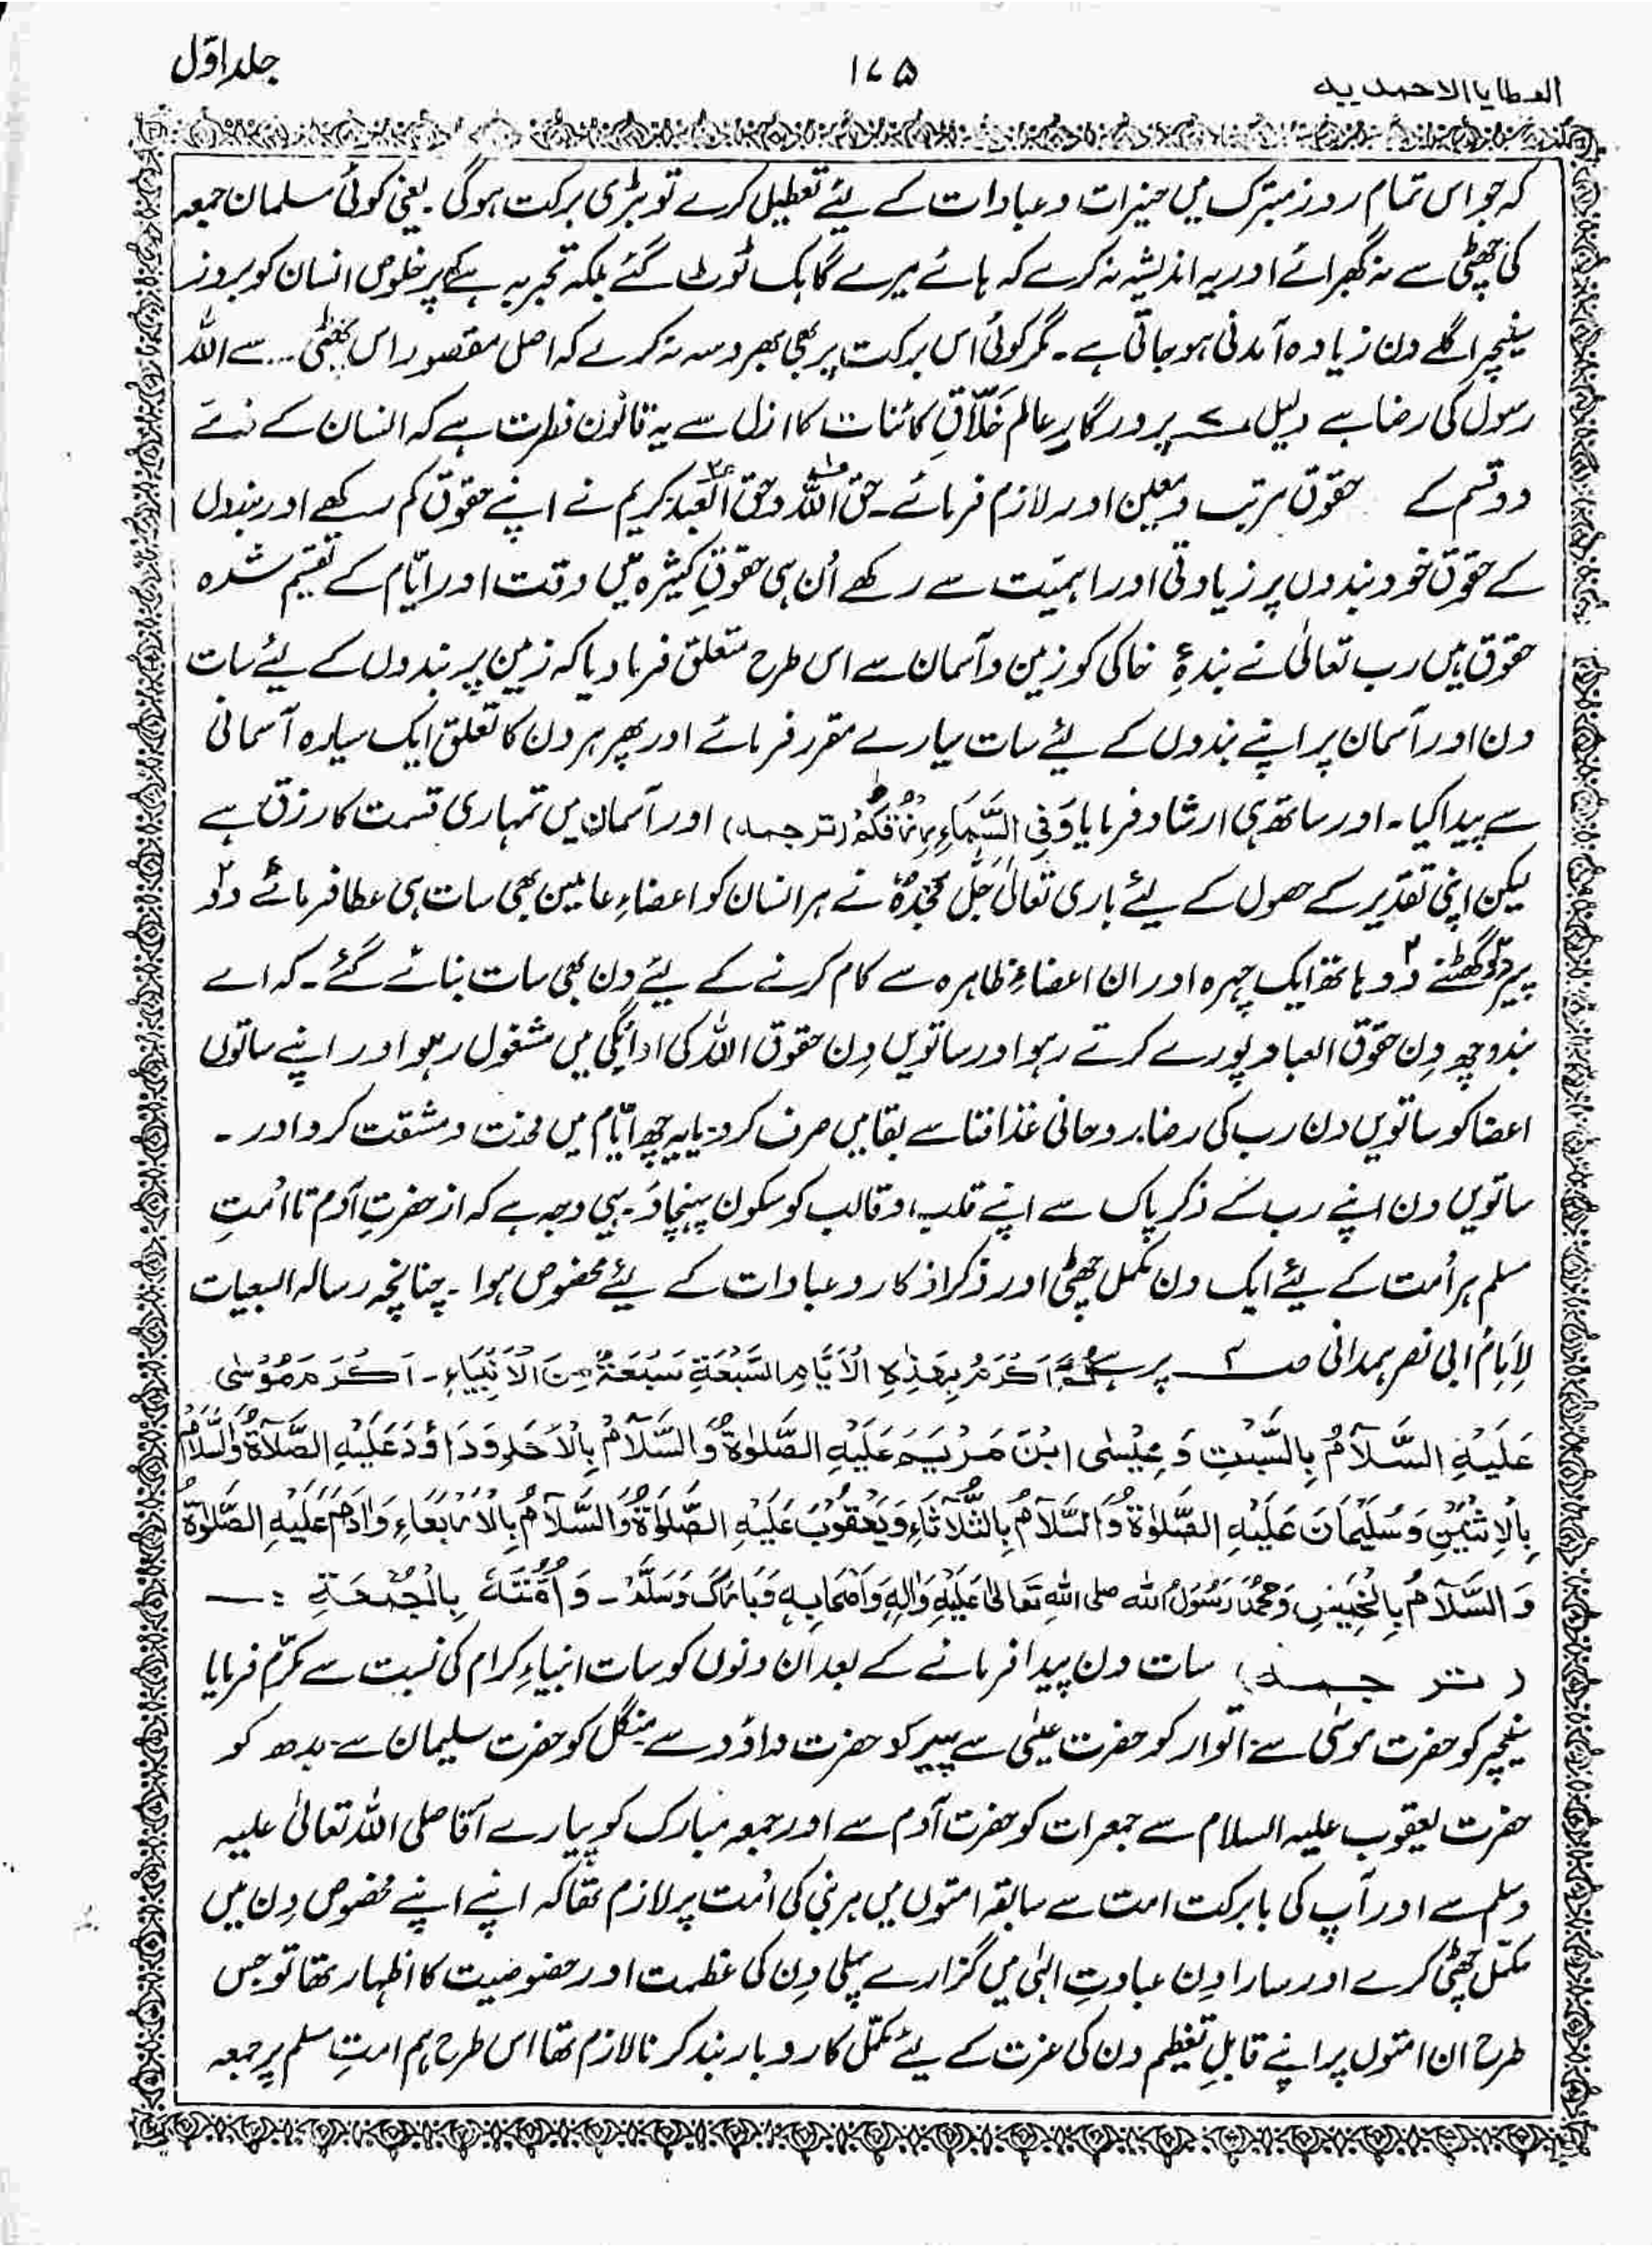 العطایا الاحمدیہ
۱۷۵
جلد اوّل
کہ جو اس تمام روز متبرک میں خیرات و عبادات کے لیئے تعطیل کرے تو بڑی برکت ہوگی۔ یعنی کوئی مسلمان جمعہ
کی چھٹی سے نہ گھبرائے اور یہ اندیشہ نہ کرے کہ ہائے میرے گاہک ٹوٹ گئے بلکہ تجربہ ہے کہ پر خلوص انسان کو بروز
سنیچر اگلے دن زیادہ آمدنی ہو جاتی ہے۔ مگر کوئی اس برکت پر بھی بھروسہ نہ کرے کہ اصل مقصود اس چھٹی ... سے اللہ
رسول کی رضا ہے دلیل ۷ پروردگارِ عالم خَلّاقِ کائنات کا ازل سے یہ قانون فطرت ہے کہ انسان کے ذمّے
دو قسم کے حقوق مرتب و معین اور لازم فرمائے۔ حق اللہ و حق العبد کریم نے اپنے حقوق کم رکھے اور بندوں
کے حقوق خود بندوں پر زیادتی اور اہمیّت سے رکھے اُن ہی حقوقِ کثیرہ میں وقت اور ایّام کے تقسیم شدہ
حقوق ہیں رب تعالیٰ نے بندۂ خاکی کو زمین و آسمان سے اس طرح متعلق فرما دیا کہ زمین پر بندوں کے لیئے سات
دن اور آسمان پر اپنے بندوں کے لیئے سات سیارے مقرر فرمائے اور پھر ہر دن کا تعلق ایک سیارہ آسمانی
سے پیدا کیا۔ اور ساتھ ہی ارشاد فرمایا وَفِی السَّمَاءِ رِزْقُکُمْ (ترجمہ) اور آسمان میں تمہاری قسمت کا رزق ہے
لیکن اپنی تقدیر کے حصول کے لیئے باری تعالیٰ جَلَّ مَجْدُہٗ نے ہر انسان کو اعضاءِ عاملین بھی سات ہی عطا فرمائے دو۲
پیر دو۲ گھٹنے دو۲ ہاتھ ایک چہرہ اور ان اعضاءِ ظاہرہ سے کام کرنے کے لیئے دِن بھی سات بنائے گئے۔ کہ اے
بندو چھ دِن حقوق العباد پورے کرتے رہو اور ساتویں دِن حقوق اللہ کی ادائیگی میں مشغول رہو اور اپنے ساتوں
اعضا کو ساتویں دن رب کی رضا، روحانی غذا فنا سے بقا میں صرف کرو۔ یا یہ چھ ایّام میں محنت و مشقت کرو اور۔
ساتویں دن اپنے رب کے ذکر پاک سے اپنے قلب و قالب کو سکون پہنچاؤ۔ یہی وجہ ہے کہ از حضرتِ آدم تا اُمتِ
مسلم ہر اُمت کے لیئے ایک دن مکمل چھٹی اور ذکر اذکار و عبادات کے لیئے مخصوص ہوا۔ چنانچہ رسالہ السبعیات
لِاِمَامُ ابی نصر ہمدانی صـ۴ پر ہے ثُمَّ اَکْرَمَ بِھٰذِہِ الْاَیَّامِ السَّبْعَۃِ سَبْعَۃً مِّنَ الْاَنْبِیَاءِ۔ اَکْرَمَ مُوْسٰی
عَلَیْہِ السَّلَامُ بِالسَّبْتِ وَ عِیْسٰی ابْنَ مَرْیَمَ عَلَیْہِ الصَّلٰوۃُ وَالسَّلَامُ بِالْاَحَدِ وَدَاؤدَ عَلَیْہِ الصَّلَاۃُ وَالسَّلَامُ
بِالْاِثْنَیْنِ وَسُلَیْمَانَ عَلَیْہِ الصَّلٰوۃُ وَالسَّلَامُ بِالثَّلَاثَاءِ وَیَعْقُوْبَ عَلَیْہِ الصَّلٰوۃُ وَالسَّلَامُ بِالْاَرْبَعَاءِ وَاٰدَمَ عَلَیْہِ الصَّلٰوۃُ
وَ السَّلَامُ بِالْخَمِیْسِ وَمُحَمَّدٌ رَسُوْلُ اللہ صلی اللہِ تَعَالیٰ عَلَیْہِ وَاٰلِہٖ وَاَصْحَابِہٖ وَبَارَکَ وَسَلَّمَ۔ وَ اُمَّتَہٗ بِالْجُمُعَۃِ :۔
(ترجمہ) سات دن پیدا فرمانے کے بعد ان دنوں کو سات انبیاءِ کرام کی نسبت سے مکرّم فرمایا
سنیچر کو حضرت موسٰی سے اتوار کو حضرت عیسٰی سے پیر کو حضرت داؤد سے منگل کو حضرت سلیمان سے۔ بدھ کو
حضرت یعقوب علیہ السلام سے جمعرات کو حضرت آدم سے اور جمعہ مبارک کو پیارے آقا صلی اللہ تعالیٰ علیہ
وسلم سے اور آپ کی بابرکت امت سے سابقہ امتوں میں ہر نبی کی اُمت پر لازم تھا کہ اپنے اپنے مخصوص دِن میں
مکمّل چھٹی کرے اور سارا دِن عبادتِ الٰہی میں گزارے یہی دِن کی عظمت اور خصوصیت کا اظہار تھا تو جس
طرح ان امتوں پر اپنے قابلِ تعظیم دن کی عزت کے لیئے مکمّل کاروبار بند کرنا لازم تھا اس طرح ہم امتِ مسلم پر جمعہ